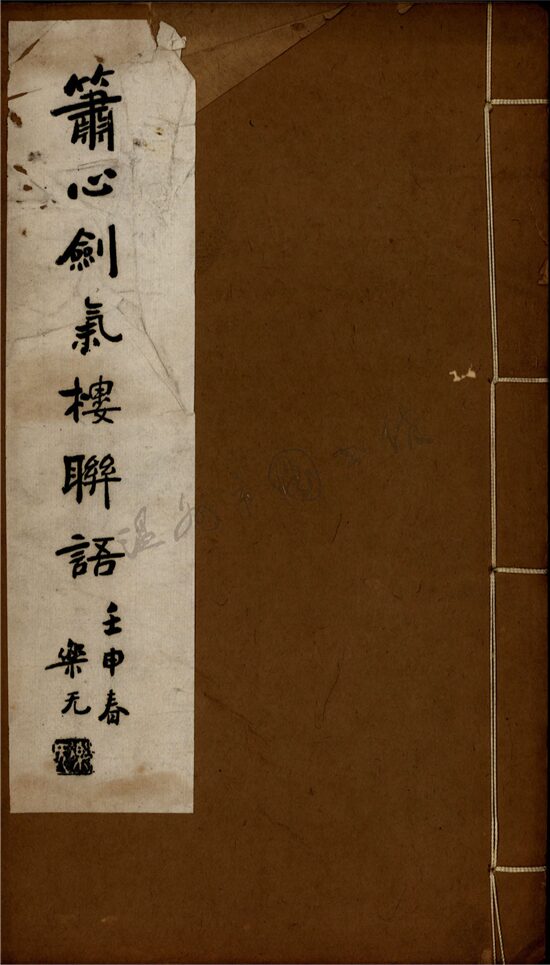 簫心劍氣樓聯語
壬申春
樂无